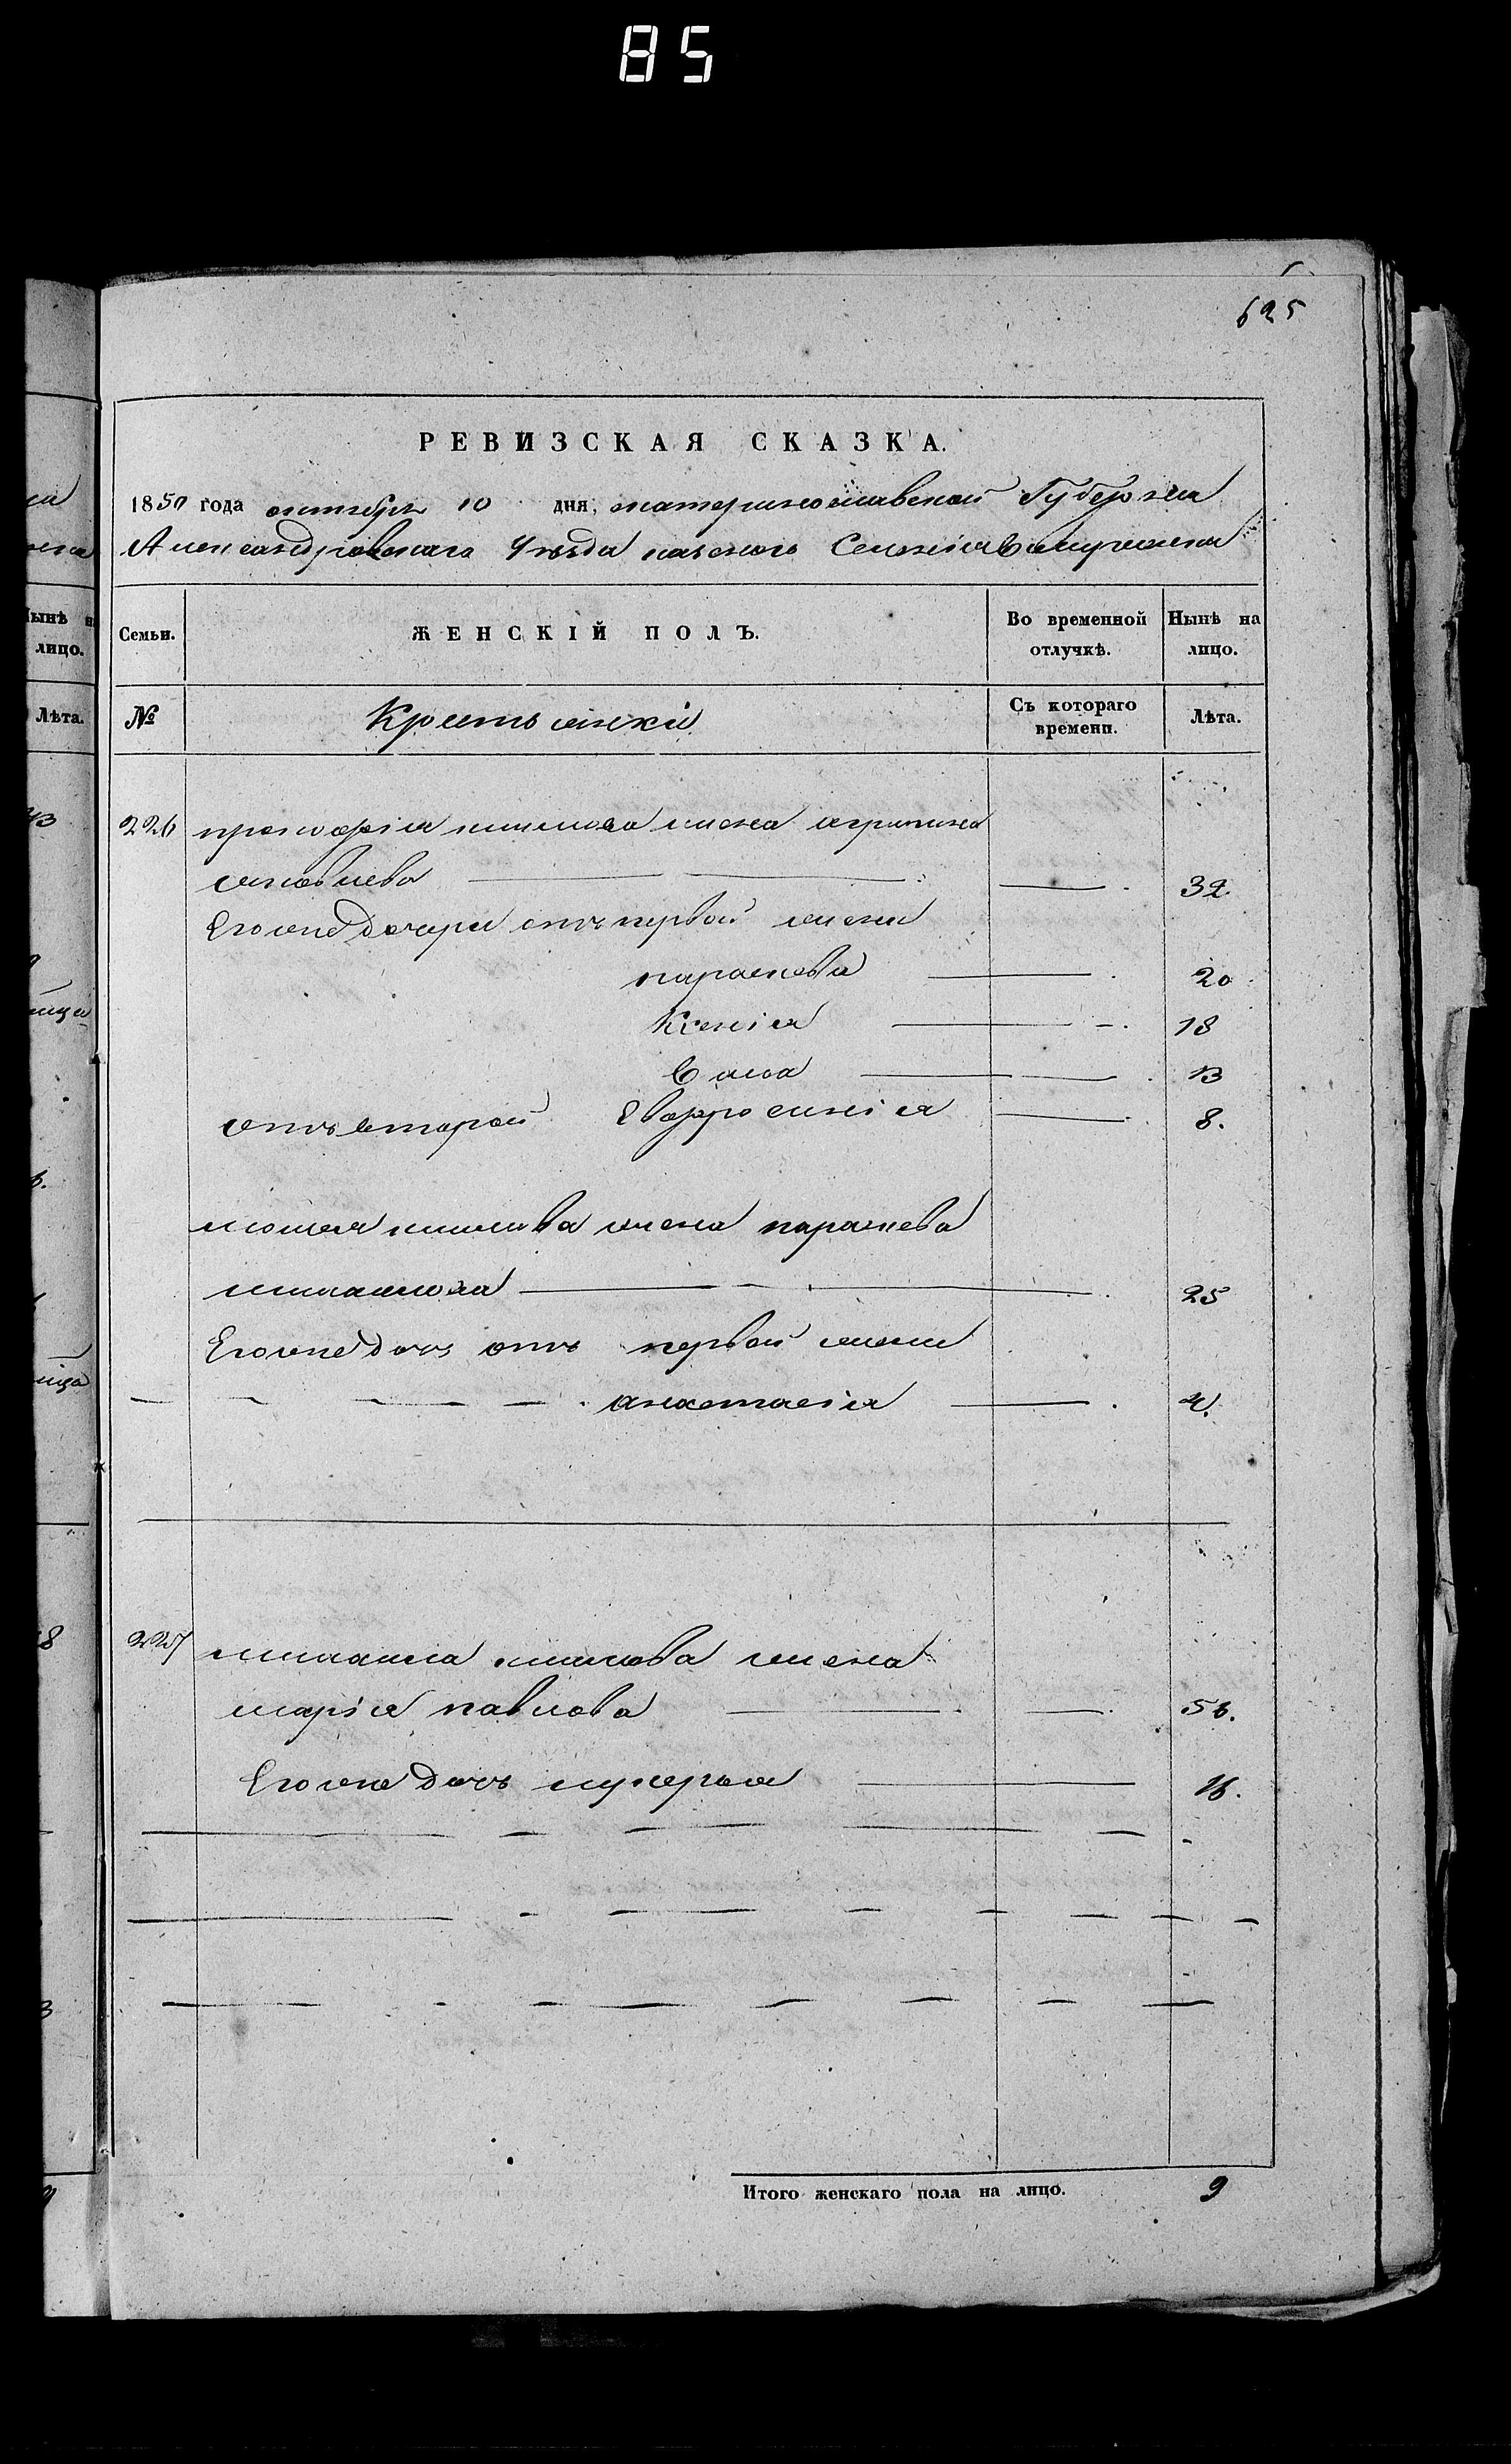 85
625
РЕВИЗСКАЯ СКАЗКА.
1850 года октября 10 дня, екатеринославской Губернии
Александровскаго Уезда казенного Селения
Семьи. ЖЕНСКІЙ ПОЛЪ. Во временной отлучкѣ. Нынѣ на лицо.
№ Крестьянки Съ котораго времени. Лѣта.
226 прокофія жена агрипина
яковлева 32.
Его же дочери отъ первой жены
парасковья 20
Ксенія 18
13
отъ второй Евфросинія 8.
жена параскева
михайлова 25
Его же дочь отъ первой жены
анастасія 4.
227 михаила жена
марія павлова 56.
Его же дочь лукерья 16.
Итого женскаго пола на лицо. 9
Нынѣ на лицо.
Лѣта.